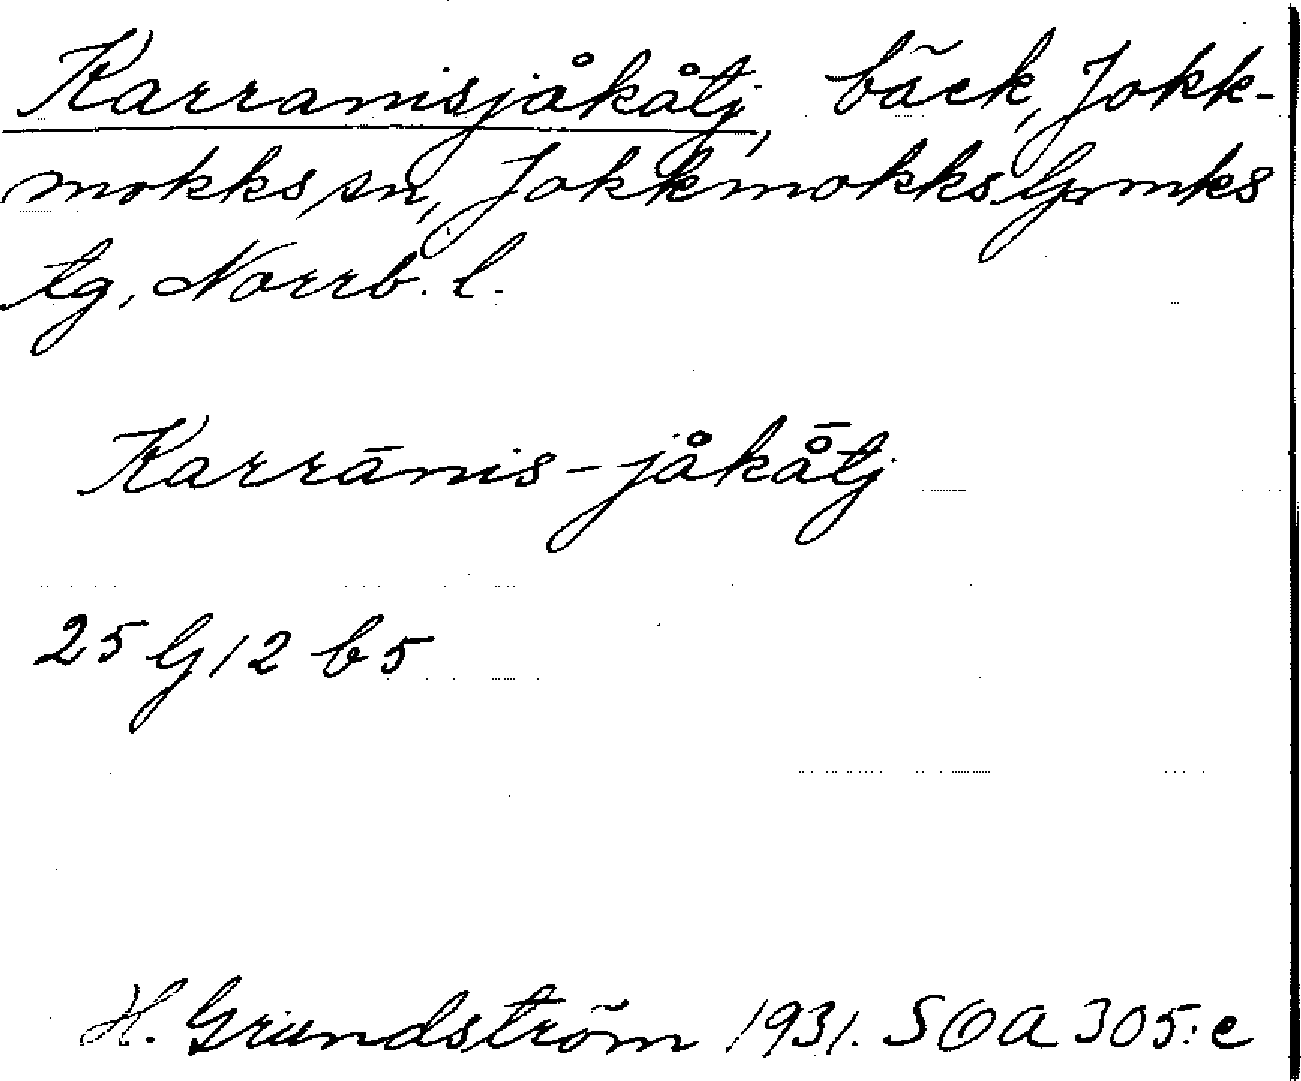 Karranisjåkåtj, bäck, Jokk-
mokks sn, Jokkmokks lpmks
tg, Norrb. l.
Karrānis-jåkå̄tj
25 G 12 b 5
H. Grundström 1931. SOA 305:e